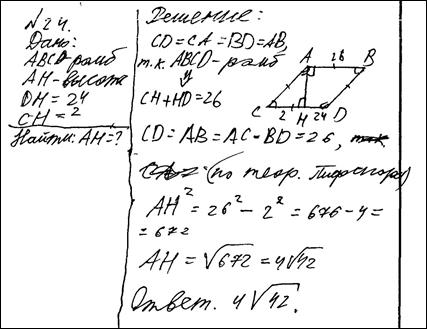 N24.
Дано:
ABCD-ромб
AH-высота
DH=24
CH=2
Найти: AH=?
Решение:
CD=CA=BD=AB,
т.к. ABCD-ромб
⇓
CH+HD=26
A 26 B
C 2 H 24 D
CD=AB=AC=BD=26,
(по теор. Пифагора)
AH²=26²-2²=676-4=
=672
AH=√672=4√42
Ответ. 4√42.